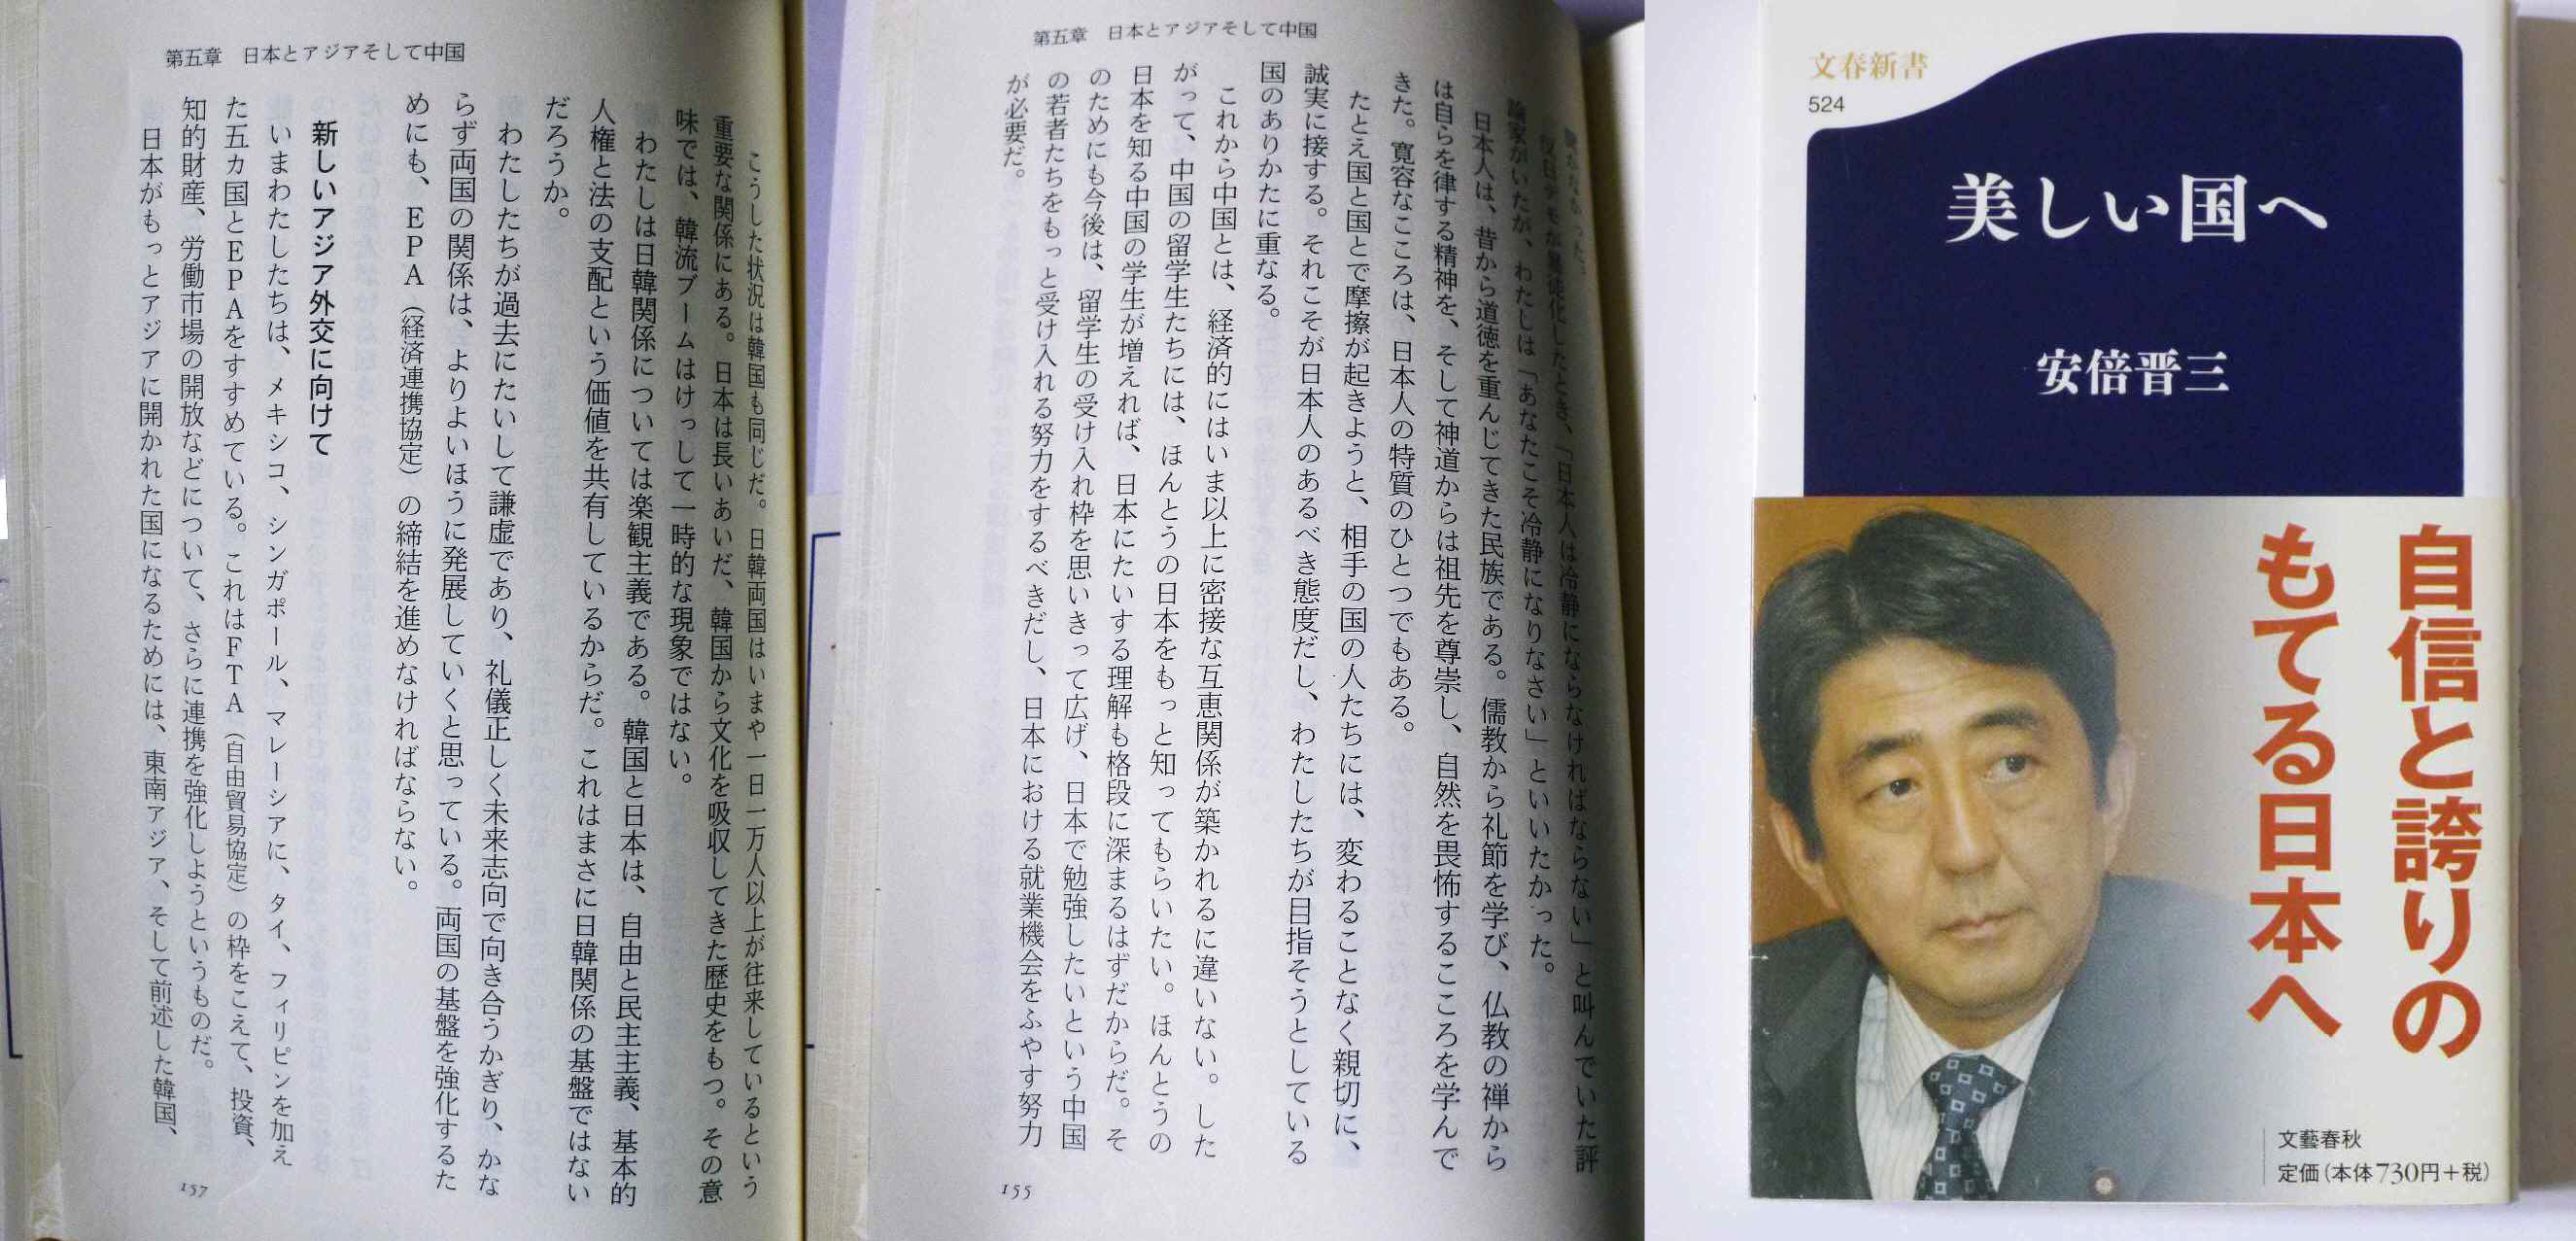 第五章　日本とアジアそして中国
こうした状況は韓国も同じだ。日韓両国はいまや一日一万人以上が往来しているという
重要な関係にある。日本は長いあいだ、韓国から文化を吸収してきた歴史をもつ。その意
味では、韓流ブームはけっして一時的な現象ではない。
わたしは日韓関係については楽観主義である。韓国と日本は、自由と民主主義、基本的
人権と法の支配という価値を共有しているからだ。これはまさに日韓関係の基盤ではない
だろうか。
わたしたちが過去にたいして謙虚であり、礼儀正しく未来志向で向き合うかぎり、かな
らず両国の関係は、よりよいほうに発展していくと思っている。両国の基盤を強化するた
めにも、ＥＰＡ（経済連携協定）の締結を進めなければならない。
新しいアジア外交に向けて
いまわたしたちは、メキシコ、シンガポール、マレーシアに、タイ、フィリピンを加え
た五カ国とＥＰＡをすすめている。これはＦＴＡ（自由貿易協定）の枠をこえて、投資、
知的財産、労働市場の開放などについて、さらに連携を強化しようというものだ。
日本がもっとアジアに開かれた国になるためには、東南アジア、そして前述した韓国、
157
第五章　日本とアジアそして中国
反日デモが暴徒化したとき、「日本人は冷静にならなければならない」と叫んでいた評
論家がいたが、わたしは「あなたこそ冷静になりなさい」といいたかった。
日本人は、昔から道徳を重んじてきた民族である。儒教から礼節を学び、仏教の禅から
は自らを律する精神を、そして神道からは祖先を尊崇し、自然を畏怖するこころを学んで
きた。寛容なこころは、日本人の特質のひとつでもある。
たとえ国と国とで摩擦が起きようと、相手の国の人たちには、変わることなく親切に、
誠実に接する。それこそが日本人のあるべき態度だし、わたしたちが目指そうとしている
国のありかたに重なる。
これから中国とは、経済的にはいま以上に密接な互恵関係が築かれるに違いない。した
がって、中国の留学生たちには、ほんとうの日本をもっと知ってもらいたい。ほんとうの
日本を知る中国の学生が増えれば、日本にたいする理解も格段に深まるはずだからだ。そ
のためにも今後は、留学生の受け入れ枠を思いきって広げ、日本で勉強したいという中国
の若者たちをもっと受け入れる努力をするべきだし、日本における就業機会をふやす努力
が必要だ。
155
文春新書
524
美しい国へ
安倍晋三
自信と誇りの
もてる日本へ
文藝春秋
定価（本体730円＋税）